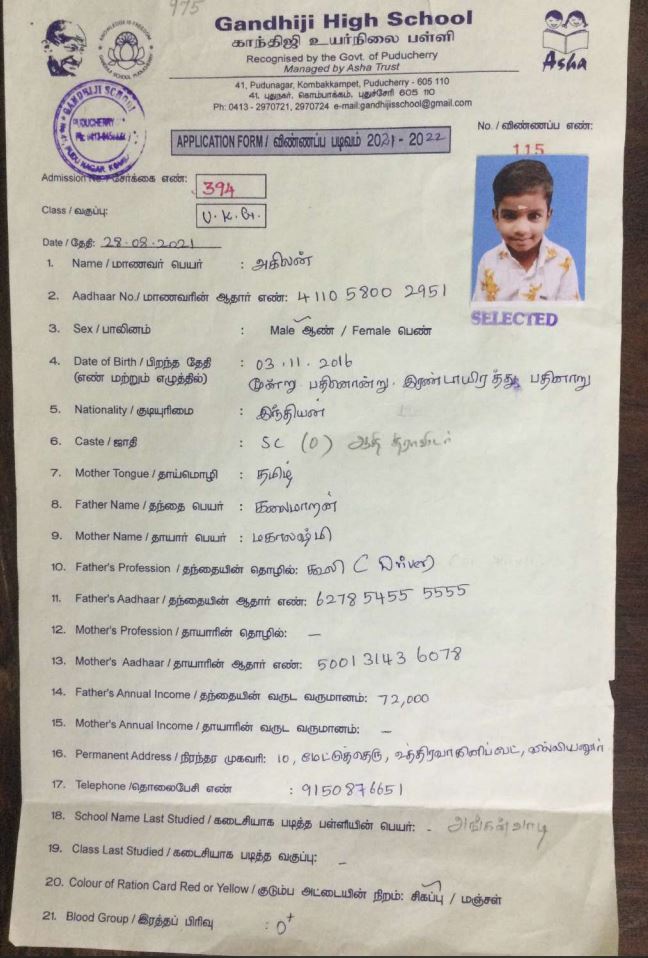 975
Gandhiji High School
காந்திஜி உயர்நிலை பள்ளி
Recognised by the Govt. of Puducherry
Managed by Asha Trust
Asha
41, Pudunagar, Kombakkampet, Puducherry - 605 110
41, புதுநகர், கொம்பாக்கம், புதுச்சேரி 605 110
Ph: 0413 - 2970721, 2970724 e-mail:gandhijisschool@gmail.com
GANDHIJI SCHOOL
PUDUCHERRY
No. / விண்ணப்ப எண்:
115
APPLICATION FORM / விண்ணப்ப படிவம் 2021 - 2022
Admission No / சேர்க்கை எண்: 394
Class / வகுப்பு: U.K.G.
Date / தேதி: 28-08-2021
SELECTED
1. Name / மாணவர் பெயர் : அகிலன்
2. Aadhaar No./ மாணவரின் ஆதார் எண்: 4110 5800 2951
3. Sex / பாலினம் : Male ஆண் / Female பெண்
4. Date of Birth / பிறந்த தேதி : 03.11.2016
(எண் மற்றும் எழுத்தில்) மூன்று பதினொன்று. இரண்டாயிரத்து பதினாறு
5. Nationality / குடியுரிமை : இந்தியன்
6. Caste / ஜாதி : SC (O) ஆதி திராவிடர்
7. Mother Tongue / தாய்மொழி : தமிழ்
8. Father Name / தந்தை பெயர் : கலைமாறன்
9. Mother Name / தாயார் பெயர் : மகாலஷ்மி
10. Father's Profession / தந்தையின் தொழில்: கூலி C Driver)
11. Father's Aadhaar / தந்தையின் ஆதார் எண்: 6278 5455 5555
12. Mother's Profession / தாயாரின் தொழில்: –
13. Mother's Aadhaar / தாயாரின் ஆதார் எண்: 5001 3143 6078
14. Father's Annual Income / தந்தையின் வருட வருமானம்: 72,000
15. Mother's Annual Income / தாயாரின் வருட வருமானம்: –
16. Permanent Address / நிரந்தர முகவரி: 10, மேட்டுத்தெரு, உத்திரவாகினிப்பேட், வில்லியனூர்
17. Telephone /தொலைபேசி எண் : 9150876651
18. School Name Last Studied / கடைசியாக படித்த பள்ளியின் பெயர்: - அங்கன்வாடி
19. Class Last Studied / கடைசியாக படித்த வகுப்பு: –
20. Colour of Ration Card Red or Yellow / குடும்ப அட்டையின் நிறம்: சிகப்பு / மஞ்சள்
21. Blood Group / இரத்தப் பிரிவு : O+